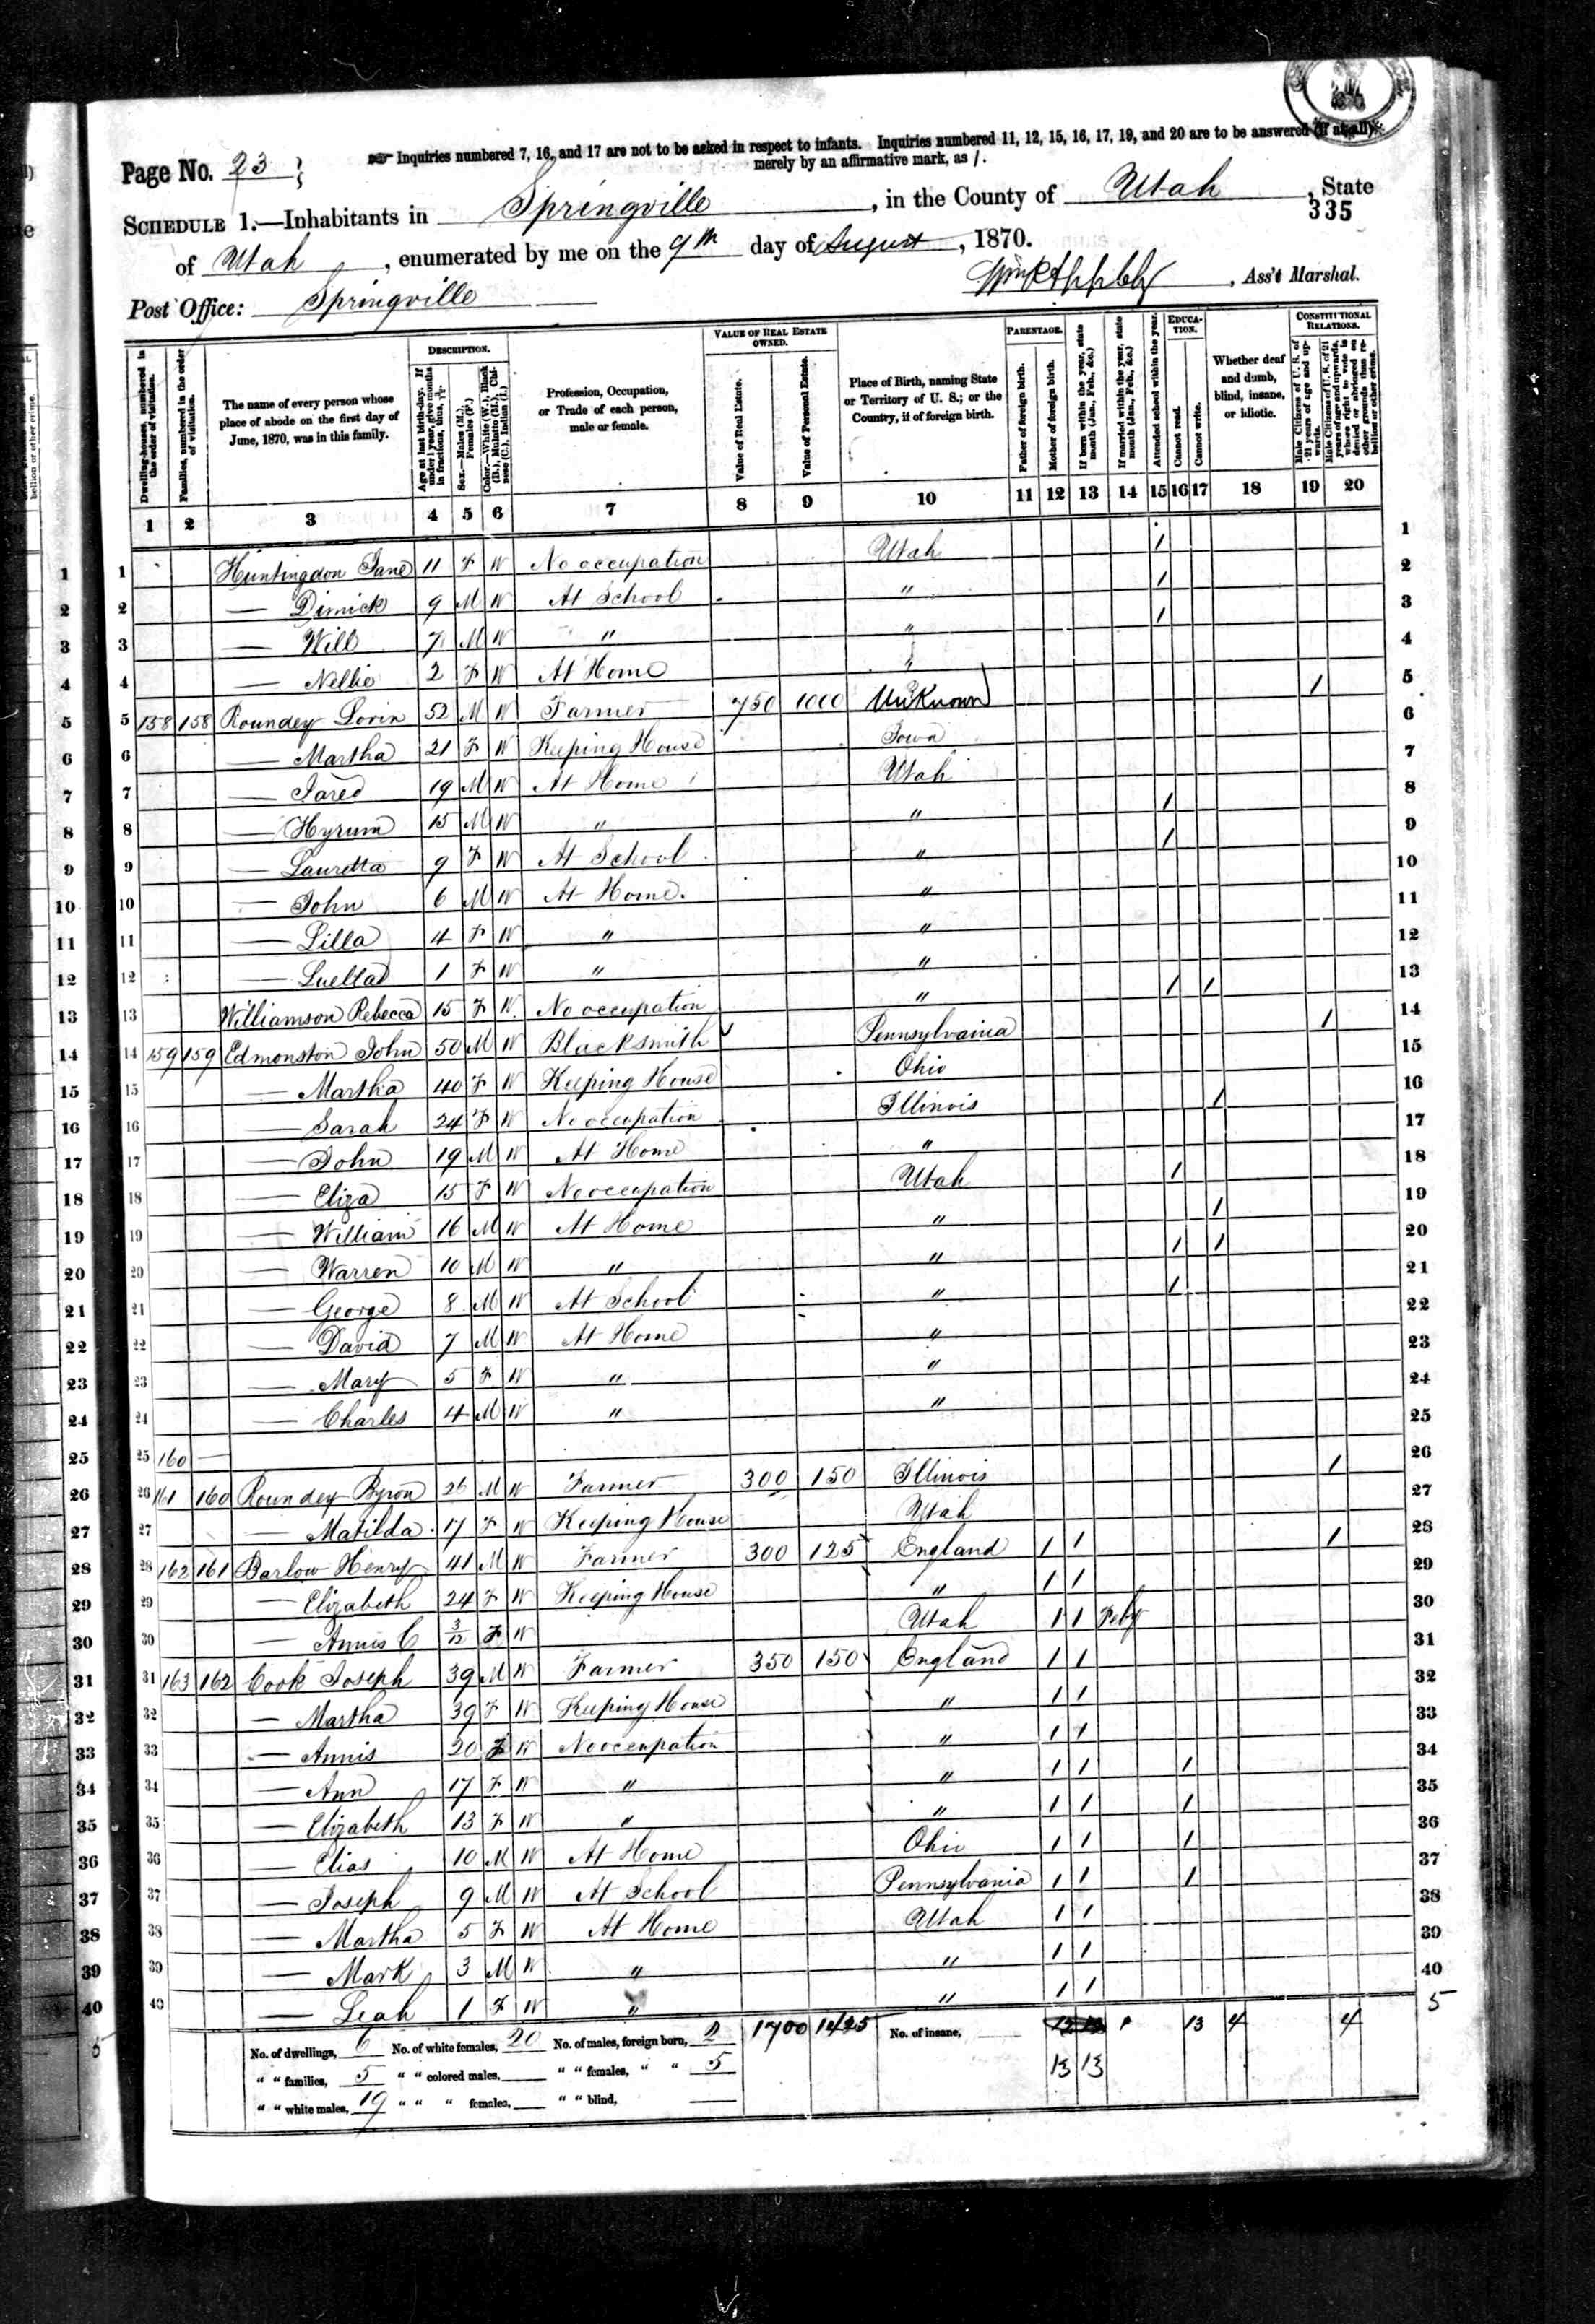 Inquiries numbered 7, 16, and 17 are not to be asked in respect to infants. Inquiries numbered 11, 12, 15, 16, 17, 19, and 20 are to be answered (if at all)
merely by an affirmative mark, as /.
Page No. 23
SCHEDULE 1.—Inhabitants in Springville, in the County of Utah, State
335
of Utah, enumerated by me on the 9th day of August, 1870.
Post Office: Springville
, Ass't Marshal.
Dwelling-houses, numbered in the order of visitation.
Families, numbered in the order of visitation.
The name of every person whose place of abode on the first day of June, 1870, was in this family.
DESCRIPTION.
Age at last birth-day. If under 1 year, give months in fractions, thus, 3/12.
Sex.—Males (M.), Females (F.)
Color.—White (W.), Black (B.), Mulatto (M.), Chinese (C.), Indian (I.)
Profession, Occupation, or Trade of each person, male or female.
VALUE OF REAL ESTATE OWNED.
Value of Real Estate.
Value of Personal Estate.
Place of Birth, naming State or Territory of U. S.; or the Country, if of foreign birth.
PARENTAGE.
Father of foreign birth.
Mother of foreign birth.
If born within the year, state month (Jan., Feb., &c.)
If married within the year, state month (Jan., Feb., &c.)
Attended school within the year.
EDUCATION.
Cannot read.
Cannot write.
Whether deaf and dumb, blind, insane, or idiotic.
CONSTITUTIONAL RELATIONS.
Male Citizens of U. S. of 21 years of age and upwards.
Male Citizens of U. S. of 21 years of age and upwards, whose right to vote is denied or abridged on other grounds than rebellion or other crime.
1 2 3 4 5 6 7 8 9 10 11 12 13 14 15 16 17 18 19 20
1 Huntingdon Jane 11 F W No occupation Utah / 1
2 — Dimick 9 M W At School " / 2
3 — Will 7 M W " " / 3
4 — Nellie 2 F W At Home " 4
5 158 158 Roundey Lorin 52 M W Farmer 750 1000 Unknown / 5
6 — Martha 21 F W Keeping House Iowa 6
7 — Jared 19 M W At Home Utah 7
8 — Hyrum 15 M W " " / 8
9 — Lauretta 9 F W At School " / 9
10 — John 6 M W At Home. " 10
11 — Lilla 4 F W " " 11
12 — Luella 1 F W " " 12
13 Williamson Rebecca 15 F W No occupation " / / 13
14 159 159 Edmonston John 50 M W Blacksmith Pennsylvania / 14
15 — Martha 40 F W Keeping House Ohio 15
16 — Sarah 24 F W No occupation Illinois / 16
17 — John 19 M W At Home " 17
18 — Eliza 15 F W No occupation Utah / 18
19 — William 16 M W At Home " / 19
20 — Warren 10 M W " " / / 20
21 — George 8 M W At School " / 21
22 — David 7 M W At Home " 22
23 — Mary 5 F W " " 23
24 — Charles 4 M W " " 24
25 160 — 25
26 161 160 Roundey Byron 26 M W Farmer 300 150 Illinois / 26
27 — Matilda 17 F W Keeping House Utah 27
28 162 161 Barlow Henry 41 M W Farmer 300 125 England / / / 28
29 — Elizabeth 24 F W Keeping House " / / 29
30 — Annis C 3/12 F W Utah / / Feby 30
31 163 162 Cook Joseph 39 M W Farmer 350 150 England / / 31
32 — Martha 39 F W Keeping House " / / 32
33 — Annis 20 F W No occupation " / / 33
34 — Ann 17 F W " " / / / 34
35 — Elizabeth 13 F W " " / / / 35
36 — Elias 10 M W At Home Ohio / / / 36
37 — Joseph 9 M W At School Pennsylvania / / / 37
38 — Martha 5 F W At Home Utah / / 38
39 — Mark 3 M W " " / / 39
40 — Leah 1 F W " " / / 40
No. of dwellings, 6 No. of white females, 20 No. of males, foreign born, 2 1700 1425 No. of insane, 13 4 4 5
" " families, 5 " " colored males, " " females, " " 5 13 13
" " white males, 19 " " " females, " " blind,